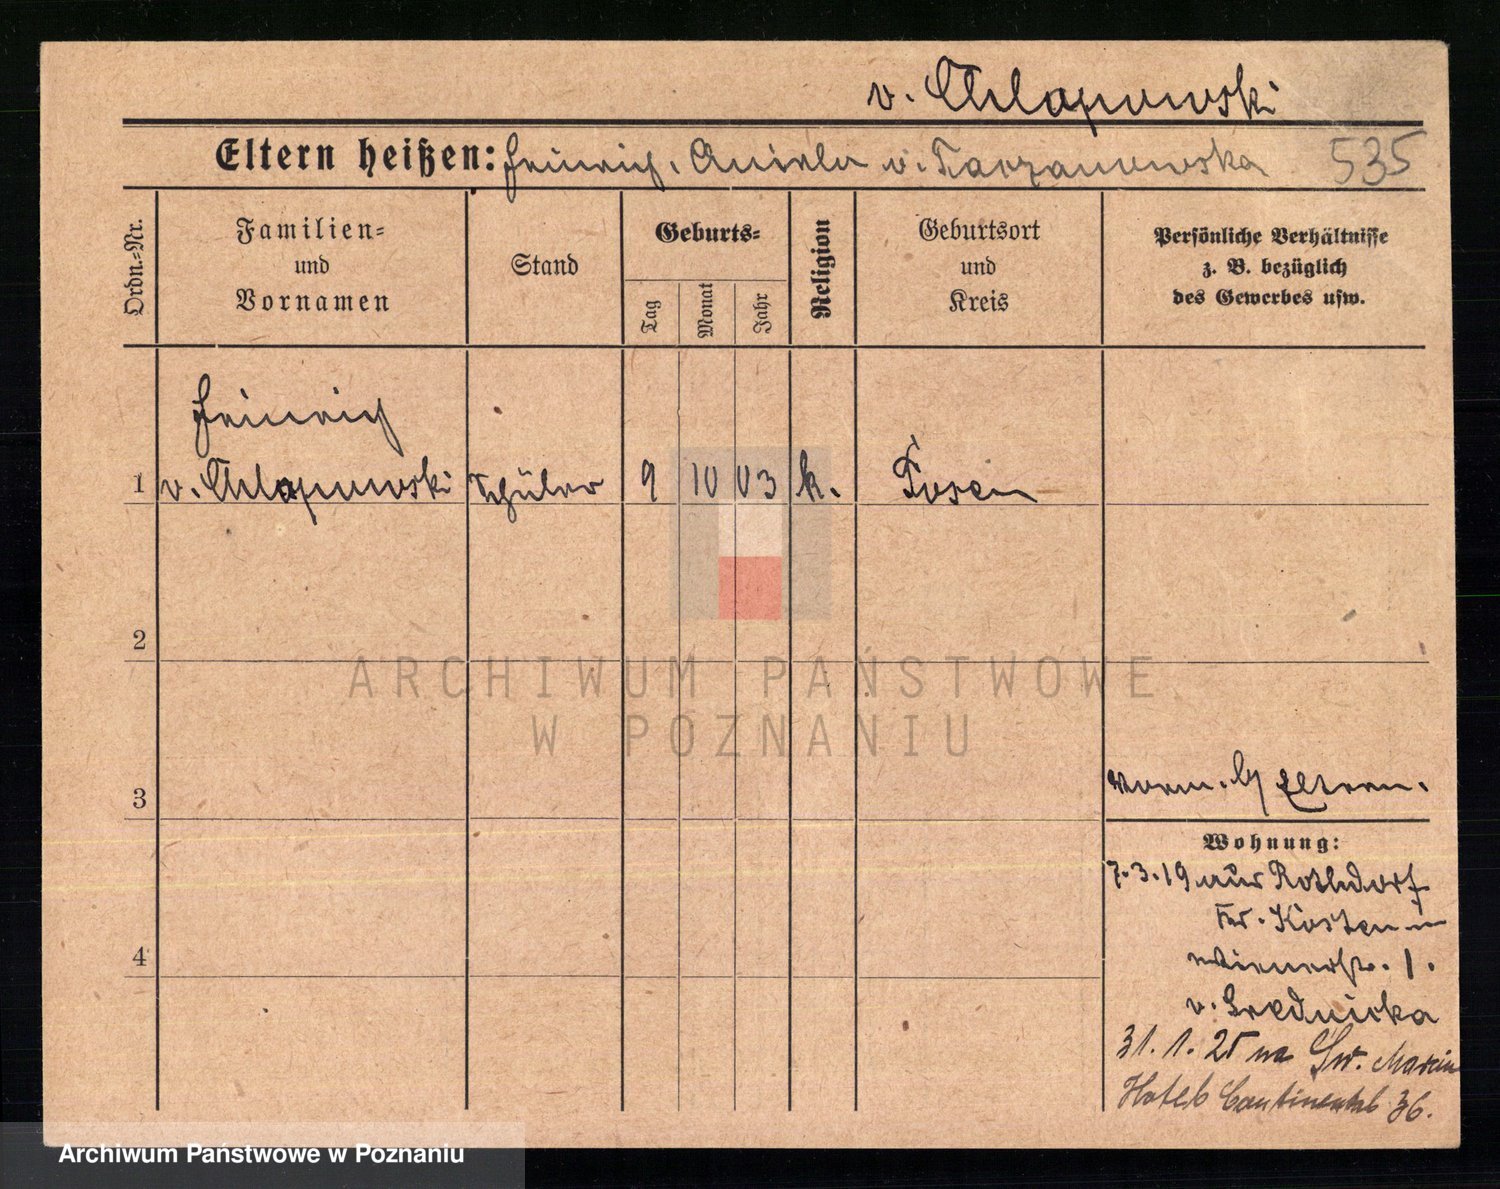 v. Chlapowski
Eltern heißen: Heinrich, Aniela v. Karzanowska 535
Ordn.-Nr.
Familien-
und
Vornamen
Stand
Geburts-
Tag
Monat
Jahr
Religion
Geburtsort
und
Kreis
Persönliche Verhältnisse
z. B. bezüglich
des Gewerbes usw.
Heinrich
1 v. Chlapowski Schüler 9 10 03 k. Posen
2
3
4
Eltern.
Wohnung:
7.3.19 aus Rothdorf
Kr. Kosten n
Wienerstr. 1.
v. Grednicka
31. 1. 25 na Św. Marcin
Hotel Continental 36.
ARCHIWUM PAŃSTWOWE
W POZNANIU
Archiwum Państwowe w Poznaniu